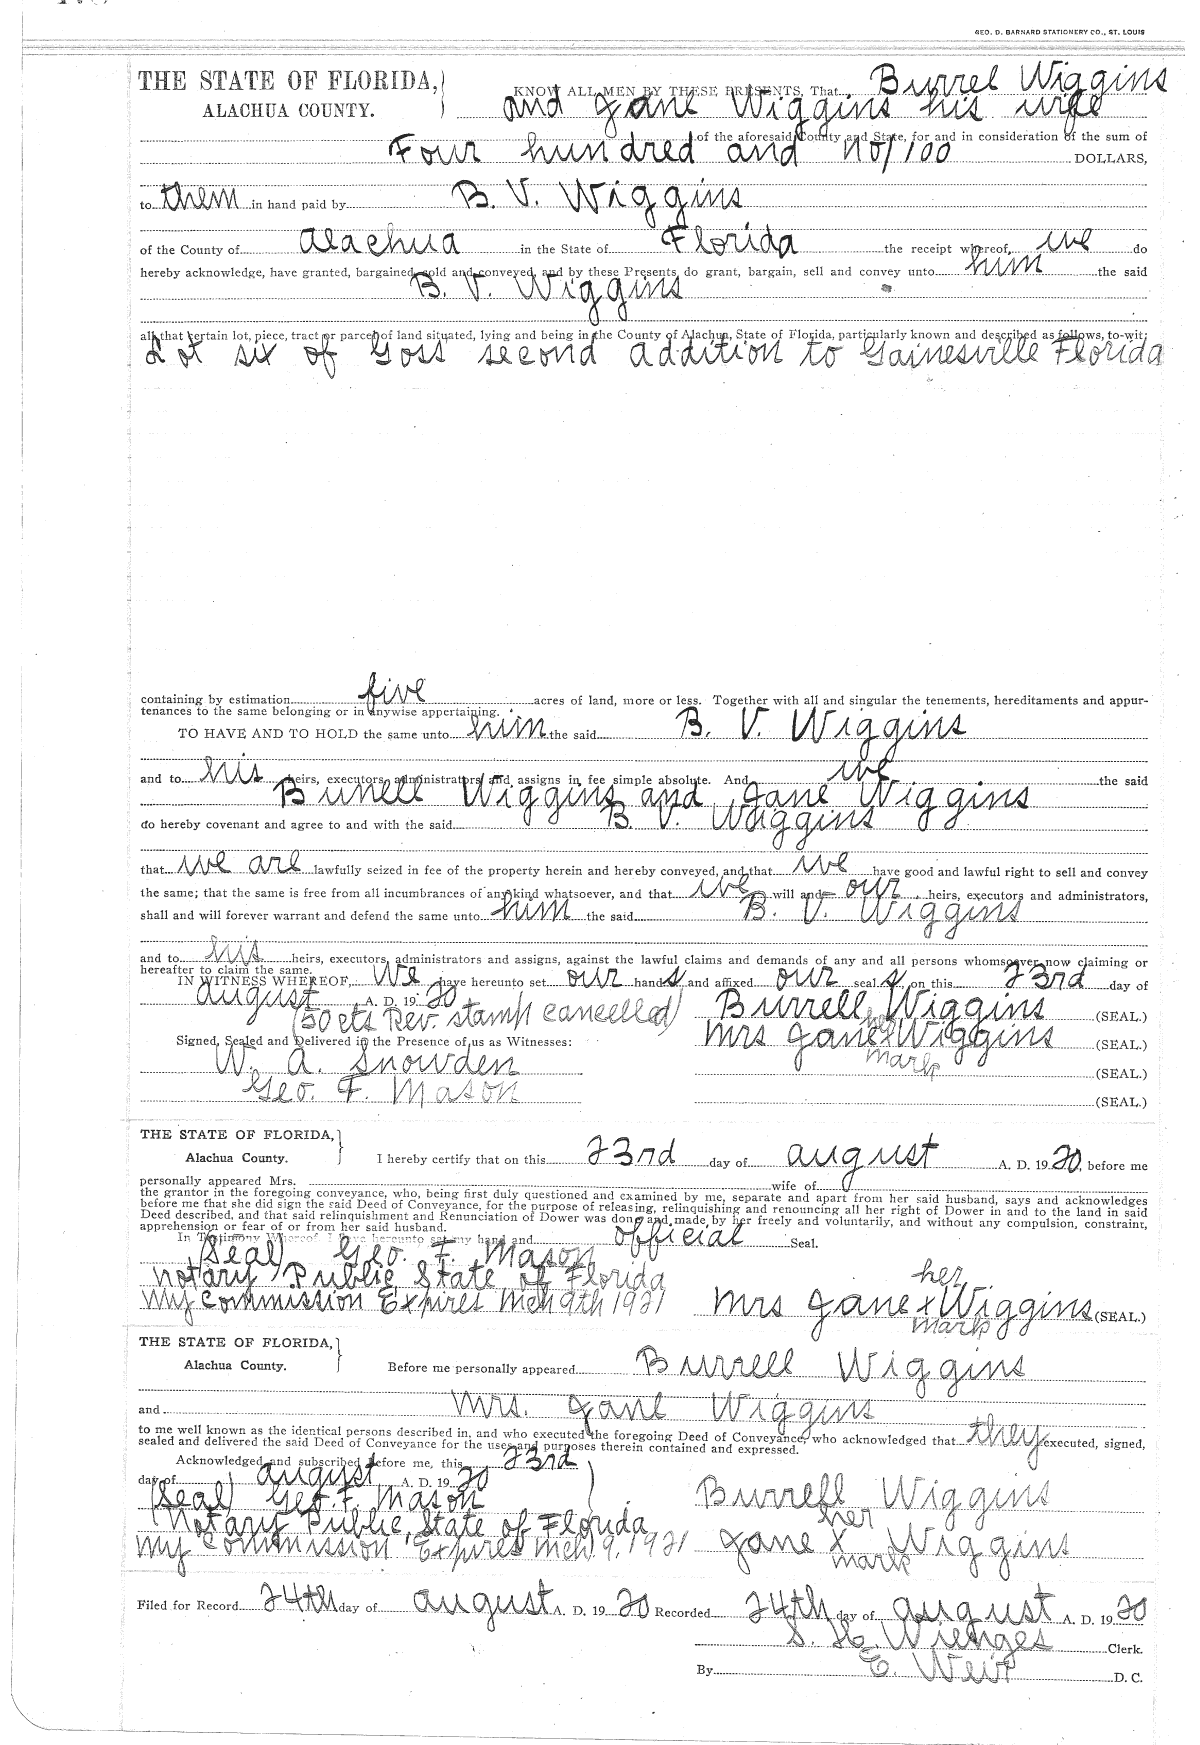 GEO. D. BARNARD STATIONERY CO., ST. LOUIS
THE STATE OF FLORIDA,
ALACHUA COUNTY.
KNOW ALL MEN BY THESE PRESENTS, That Burrel Wiggins
and Jane Wiggins his wife
of the aforesaid County and State, for and in consideration of the sum of
Four hundred and no/100 DOLLARS,
to them in hand paid by B. V. Wiggins
of the County of Alachua in the State of Florida the receipt whereof, we do
hereby acknowledge, have granted, bargained, sold and conveyed, and by these Presents, do grant, bargain, sell and convey unto him the said
B. V. Wiggins
all that certain lot, piece, tract or parcel of land situated, lying and being in the County of Alachua, State of Florida, particularly known and described as follows, to-wit:
Lot six of Goss second addition to Gainesville Florida
containing by estimation five acres of land, more or less. Together with all and singular the tenements, hereditaments and appur-
tenances to the same belonging or in anywise appertaining.
TO HAVE AND TO HOLD the same unto him the said B. V. Wiggins
and to his heirs, executors, administrators and assigns in fee simple absolute. And we the said
Burrell Wiggins and Jane Wiggins
do hereby covenant and agree to and with the said B. V. Wiggins
that we are lawfully seized in fee of the property herein and hereby conveyed, and that we have good and lawful right to sell and convey
the same; that the same is free from all incumbrances of any kind whatsoever, and that we will and our heirs, executors and administrators,
shall and will forever warrant and defend the same unto him the said B. V. Wiggins
and to his heirs, executors, administrators and assigns, against the lawful claims and demands of any and all persons whomsoever now claiming or
hereafter to claim the same.
IN WITNESS WHEREOF, We have hereunto set our hand s and affixed our seal s on this 23rd day of
August A. D. 19 20 Burrell Wiggins (SEAL.)
(50 cts Rev. stamp cancelled)
her
Mrs Jane x Wiggins (SEAL.)
mark
Signed, Sealed and Delivered in the Presence of us as Witnesses:
W. A. Snowden (SEAL.)
Geo. F. Mason (SEAL.)
THE STATE OF FLORIDA,
Alachua County. I hereby certify that on this 23rd day of August A. D. 19 20, before me
personally appeared Mrs. wife of
the grantor in the foregoing conveyance, who, being first duly questioned and examined by me, separate and apart from her said husband, says and acknowledges
before me that she did sign the said Deed of Conveyance, for the purpose of releasing, relinquishing and renouncing all her right of Dower in and to the land in said
Deed described, and that said relinquishment and Renunciation of Dower was done and made by her freely and voluntarily, and without any compulsion, constraint,
apprehension or fear of or from her said husband.
In Testimony Whereof I have hereunto set my hand and official Seal.
(Seal) Geo. F. Mason
Notary Public, State of Florida
her
My Commission Expires Mch 9th 1921 Mrs Jane x Wiggins (SEAL.)
mark
THE STATE OF FLORIDA,
Alachua County. Before me personally appeared Burrell Wiggins
and Mrs. Jane Wiggins
to me well known as the identical persons described in, and who executed the foregoing Deed of Conveyance, who acknowledged that they executed, signed,
sealed and delivered the said Deed of Conveyance for the uses and purposes therein contained and expressed.
Acknowledged and subscribed before me, this 23rd
day of August A. D. 19 20
(Seal) Geo. F. Mason Burrell Wiggins
Notary Public, State of Florida
her
My Commission Expires Mch 9, 1921 Jane X Wiggins
mark
Filed for Record 24th day of August A. D. 19 20 Recorded 24th day of August A. D. 19 20
S. H. Wienges Clerk.
By E. Weir D. C.